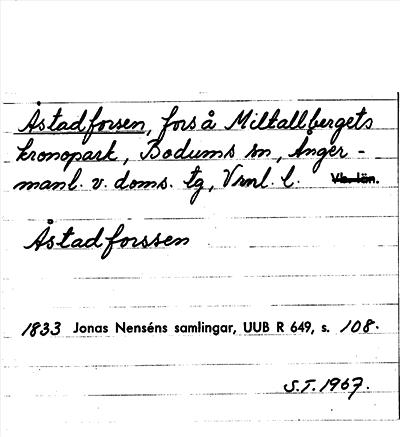 Åstadforsen, fors å Miltallbergets
kronopark, Bodums sn, Ånger-
manl. v. doms. tg, Vrnl. l. Vb. län.
Åstadforssen
1833 Jonas Nenséns samlingar, UUB R 649, s. 108.
S.T. 1967.